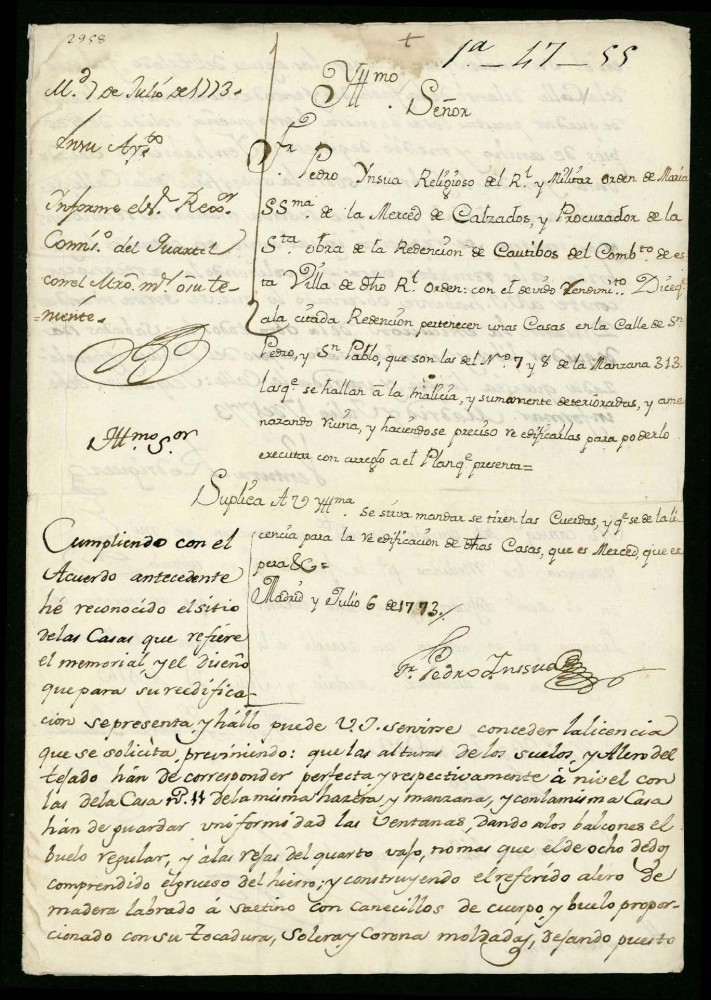 2958
+
1ª - 47 - 55
M.d 7 de Julio de 1773.
En su Ay.to
Informe el S.r Rexor.
Comis.º del Quartel
con el Mro. m.r ó su te-
niente.
Yll.mo
Señor
Fr. Pedro Ynsua Religioso del R.l y Militar orden de Maria
SS.ma de la Merced de Calzados, y Procurador de la
S.ta obra de la Redencion de Cautibos del Comb.to de es
ta Villa de dho R.l Orden: con el devido rendim.to Dice q.e
ala citada Redencion pertenecen unas Casas en la Calle de S.n
Pedro, y S.n Pablo, que son las del N.º 7 y 8 de la Manzana 313
las q.e se hallan â la malicia, y sumamente deterioradas, y ame
nazando ruina, y haciendose preciso re edificarlas para poderlo
executar con arreglo a el Plan q.e presenta=
Suplica A V Yllma. se sirva mandar se tiren las Cuerdas, y q.e se de la li
cencia para la re edificacion de dhas Casas, que es Merced, que es
pera &c=
Madrid y Julio 6 de 1773.
Fr. Pedro Inssua
Yll.mo S.or
Cumpliendo con el
Acuerdo antecedente
hé reconocido el sitio
delas Casas que refiere
el memorial y el diseño
que para su reedifica-
cion se presenta y hállo puede V.I. servirse conceder la licencia
que se solicita, previniendo: que las alturas de los suelos, y Alero del
tejado hán de corresponder perfecta y respectivamente â nivel con
las dela Casa n.º 11 dela misma hazera y manzana, y conla misma Casa
hán de guardar uniformidad las ventanas, dando alos balcones el
buelo regular, y álas rejas del quarto vajo, no mas que el de ocho dedos
comprendido el grueso del hierro; y construyendo el referido alero de
madera labrado á saetino con canecillos de cuerpo y buelo propor-
cionado con su tocadura, solera y Corona moldadas, dejando puesto